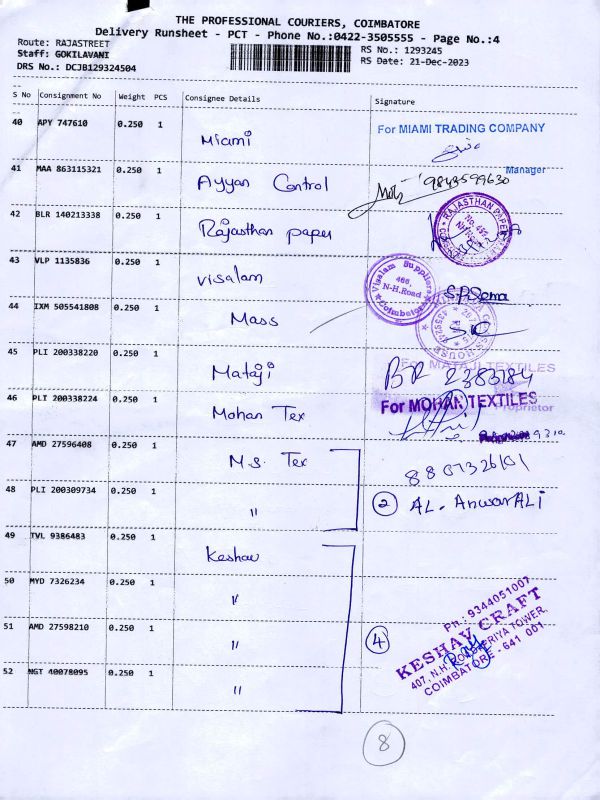 THE PROFESSIONAL COURIERS, COIMBATORE
Delivery Runsheet - PCT - Phone No.:0422-3505555 - Page No.:4
Route: RAJASTREET
RS No.: 1293245
Staff: GOKILAVANI
RS Date: 21-Dec-2023
DRS No.: DCJB129324504
S No Consignment No Weight PCS Consignee Details Signature
40 APY 747610 0.250 1 Miami
For MIAMI TRADING COMPANY
Manager
41 MAA 863115321 0.250 1 Ayyan Control
9843599630
42 BLR 140213338 0.250 1 Rajasthan paper
RAJASTHAN PAPER
43 VLP 1135836 0.250 1 visalam
Visalam Suppliers
466,
N-H.Road
Coimbatore
44 IXM 505541808 0.250 1 Mass
HOUSE
45 PLI 200338220 0.250 1 Mataji
For MATAJI TEXTILES
BR 2383184
Proprietor
46 PLI 200338224 0.250 1 Mohan Tex
For MOHAN TEXTILES
47 AMD 27596408 0.250 1 M.S. Tex
48 PLI 200309734 0.250 1 "
2 AL. AnwarALi
49 TVL 9386483 0.250 1 Keshav
50 MYD 7326234 0.250 1 "
51 AMD 27598210 0.250 1 "
4
Ph : 9344051007
KESHAV CRAFT
407, N.H. ROAD, PERIYA TOWER,
COIMBATORE - 641 001
52 NGT 40078095 0.250 1 "
8